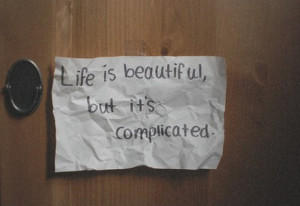 Life is beautiful,
but it's
complicated.